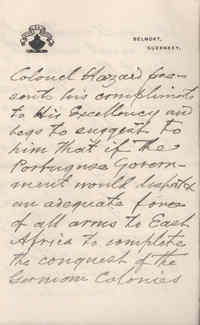 BELMONT,
GUERNSEY.
Colonel Hazard pre-
sents his compliments
to His Excellency and
begs to suggest to
him that if the
Portuguese Govern-
ment would dispatch
an adequate force
of all arms to East
Africa to complete
the conquest of the
German Colonies